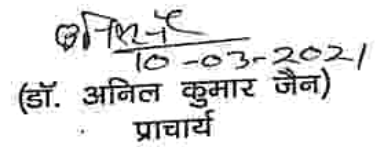 10-03-2021
(डॉ. अनिल कुमार जैन)
प्राचार्य